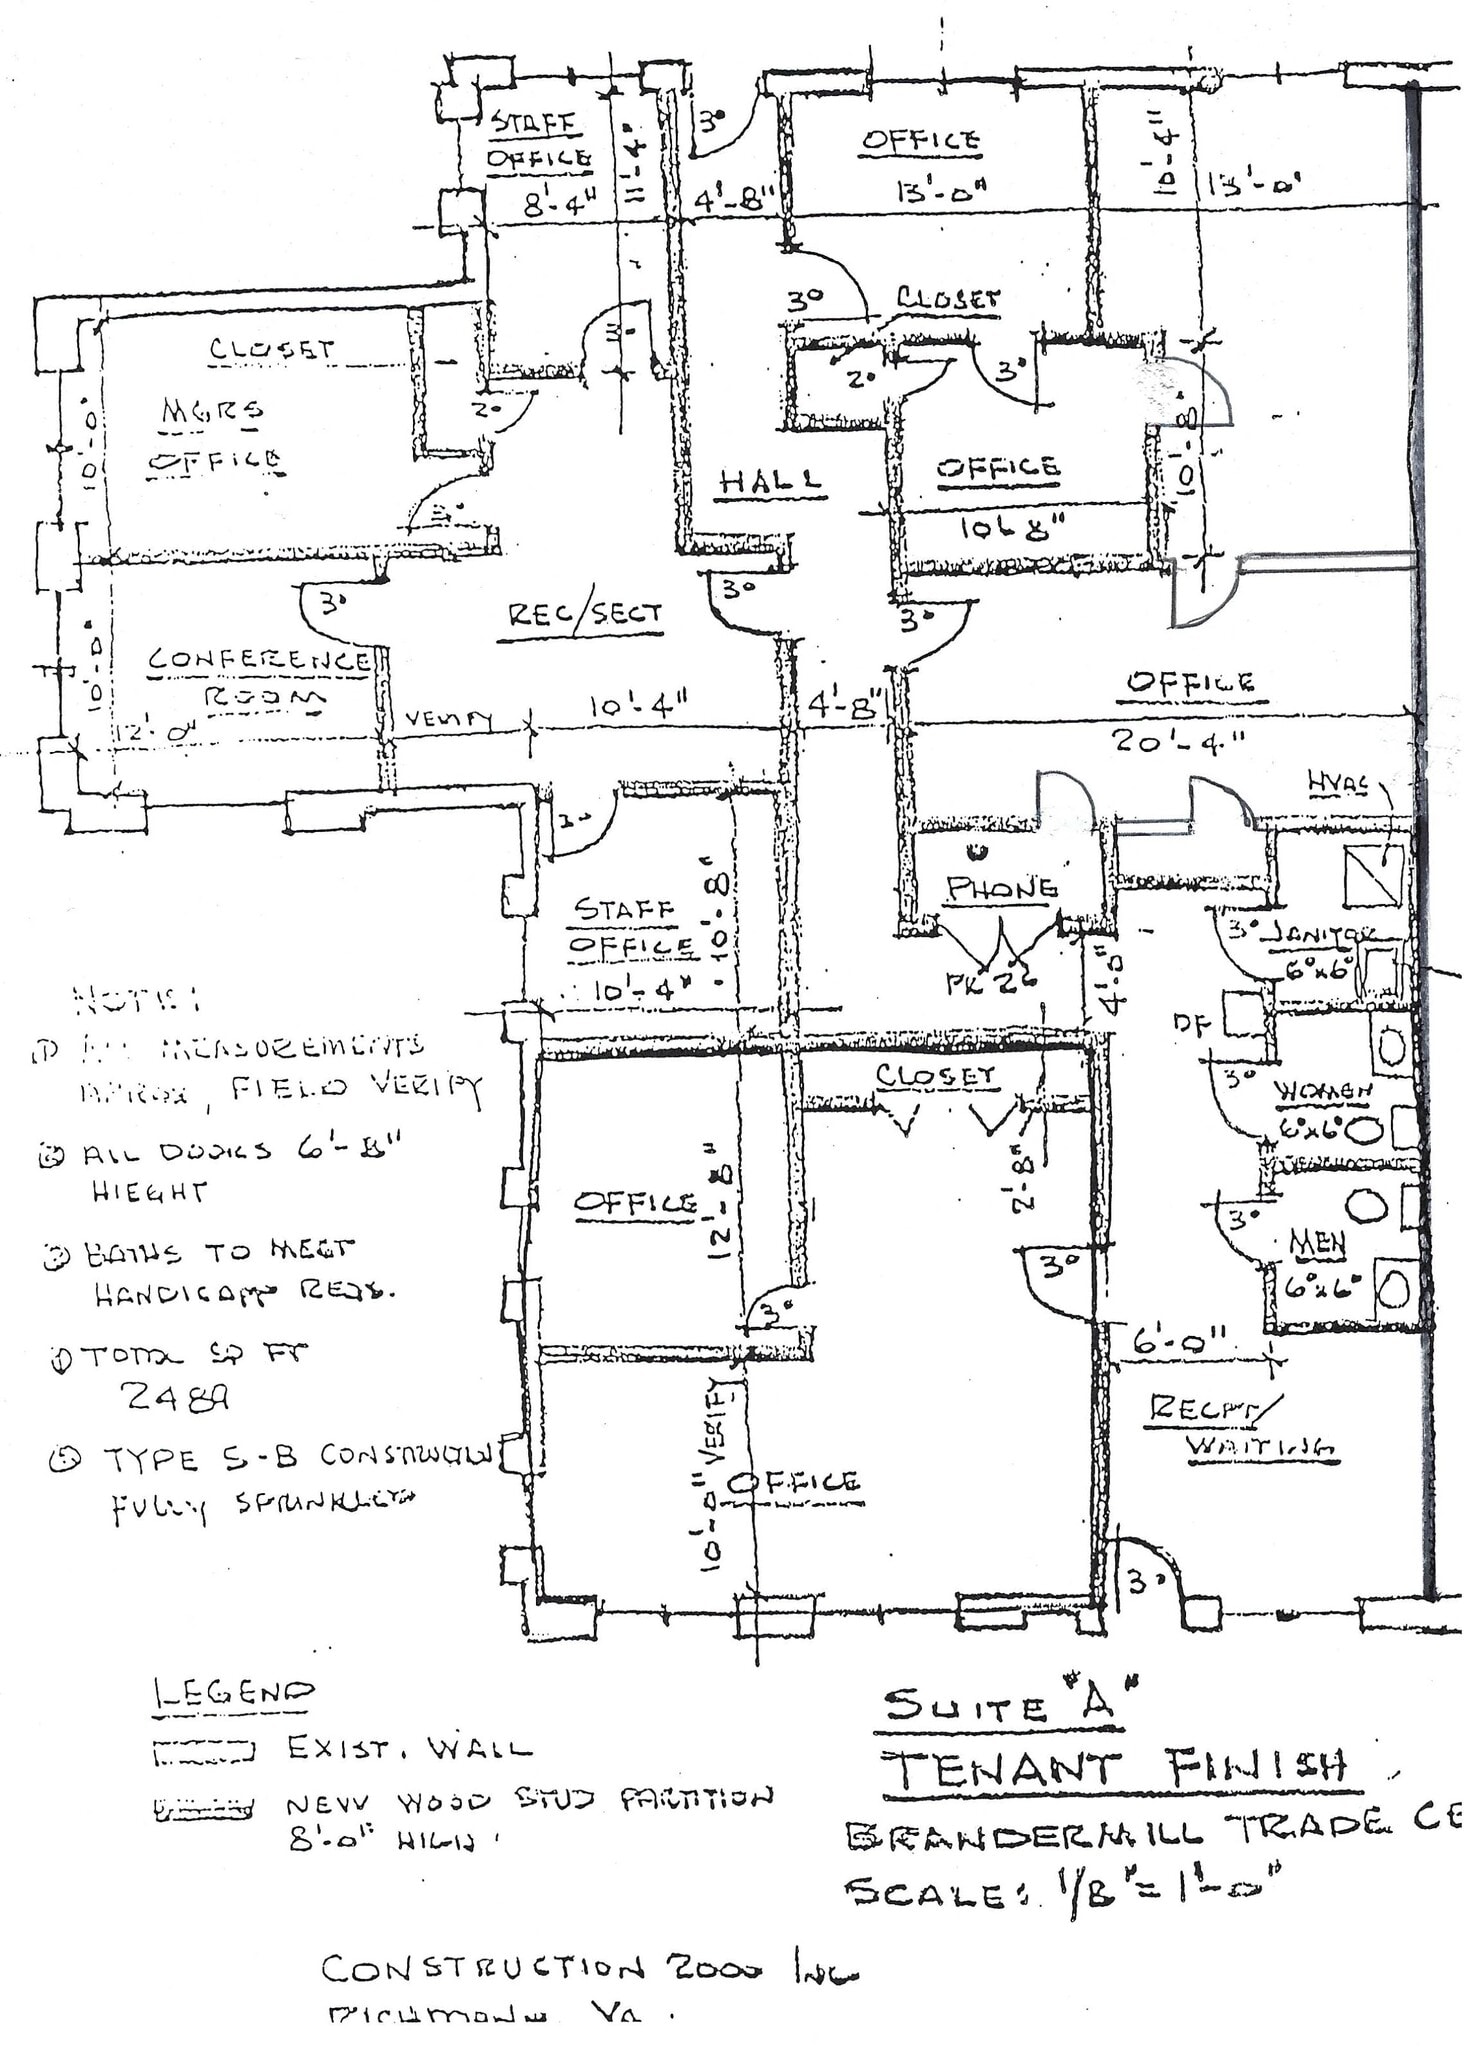 STAFF
OFFICE
8'-4"
11'-4"
3°
4'-8"
OFFICE
13'-0"
10'-4"
13'-0"
3°
3°
CLOSET
CLOSET
MGRS
OFFICE
10'-0"
2°
3°
2°
3°
HALL
OFFICE
10'-8"
10'-8"
3°
REC/SECT
3°
3°
CONFERENCE
ROOM
10'-0"
12'-0"
VERIFY
10'-4"
4'-8"
OFFICE
20'-4"
HVAC
3°
STAFF
OFFICE
10'-4"
10'-8"
PHONE
PR 26
4'-0"
3°
JANITOR
6°x6°
DF
3°
WOMEN
6°x6°
CLOSET
2'-8"
OFFICE
12'-8"
3°
3°
3°
MEN
6°x6°
6'-0"
RECPT/
WAITING
10'-0" VERIFY
OFFICE
3°
NOTES:
① ALL MEASUREMENTS
APROX, FIELD VERIFY
② ALL DOORS 6'-8"
HIEGHT
③ BATHS TO MEET
HANDICAPP REQS.
TOTAL SQ FT
2489
⑤ TYPE 5-B CONSTRUCTION
FULLY SPRINKLED
LEGEND
EXIST. WALL
NEW WOOD STUD PARTITION
8'-0" HIGH.
SUITE "A"
TENANT FINISH
BRANDERMILL TRADE CE
SCALE: 1/8" = 1'-0"
CONSTRUCTION 2000 INC
RICHMOND VA.